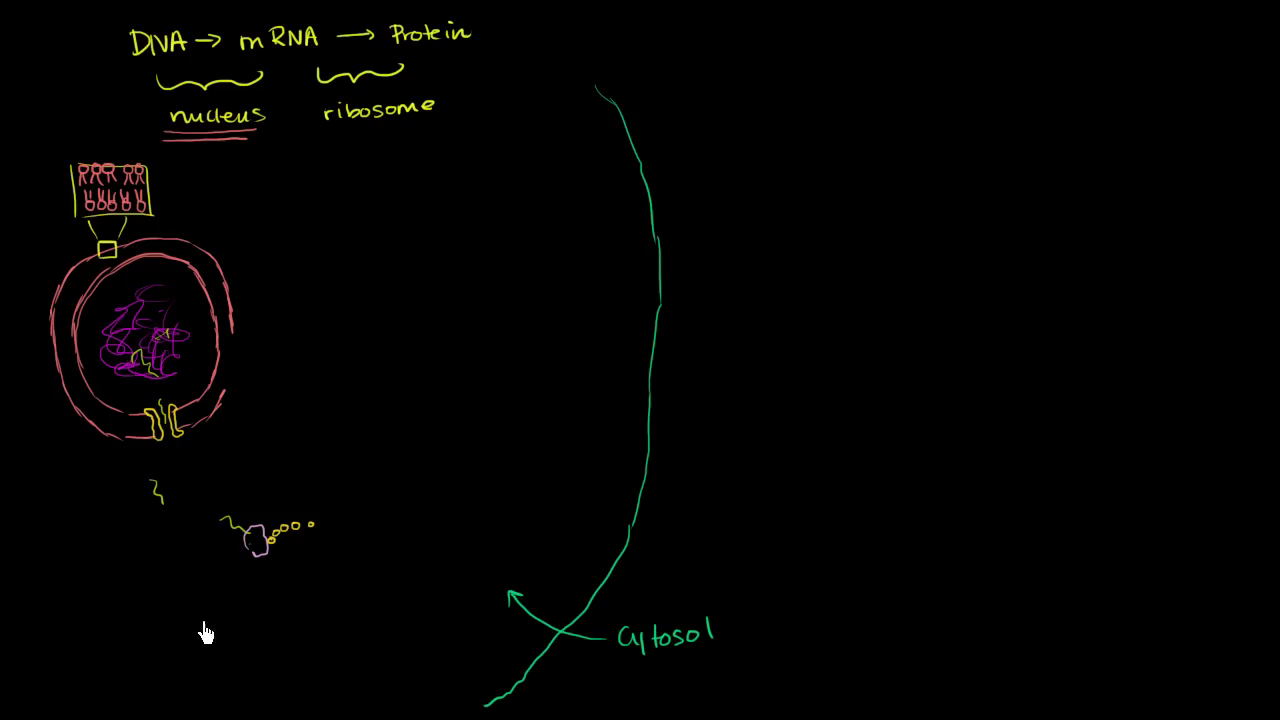 DNA → mRNA → Protein
nucleus ribosome
Cytosol